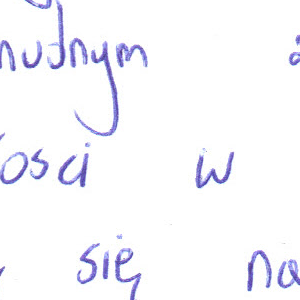 nudnym
ości w
się na